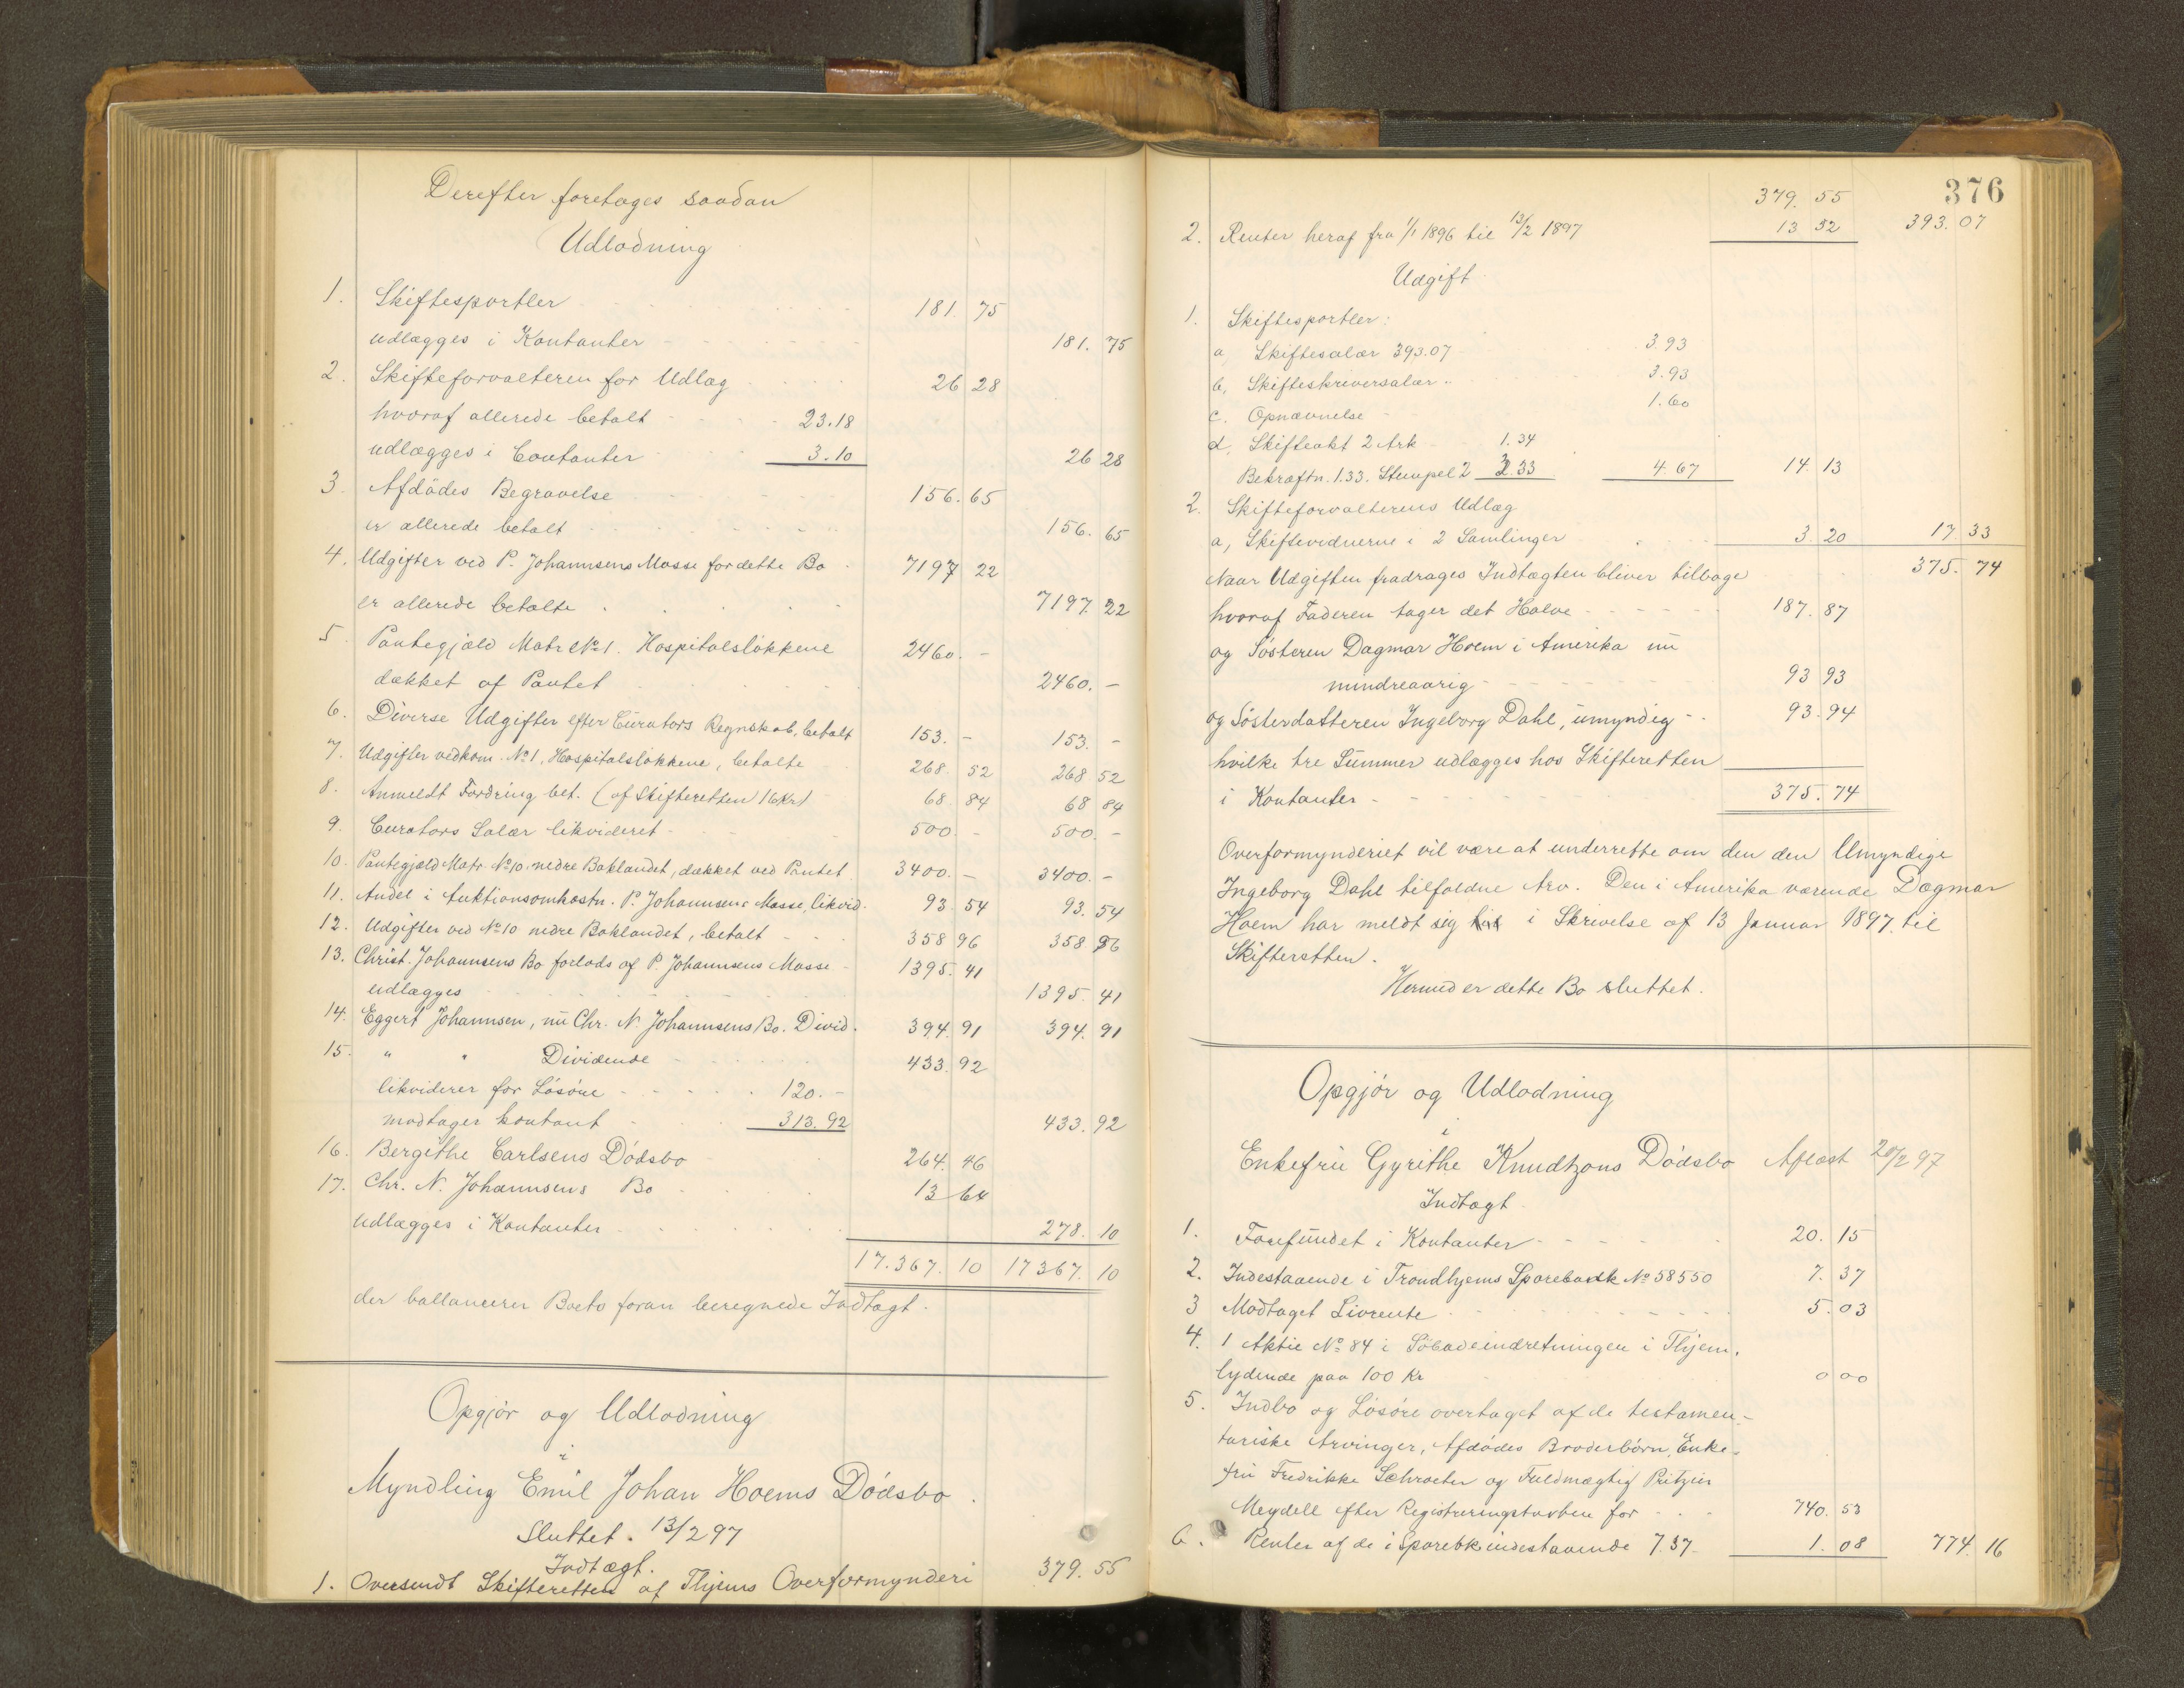 Derefter foretages saadan
Udlodning
1. Skiftesportler 181. 75
udlægges i Kontanter 181. 75
2. Skifteforvalteren for Udlæg 26 28
hvoraf allerede betalt 23.18
udlægges i Contanter 3.10 26 28
3. Afdødes Begravelse 156. 65
er allerede betalt 156. 65
4. Udgifter ved P. Johannsens Masse for dette Bo 7197 22
er allerede betalte 7197. 22
5. Pantegjæld Matr No 1. Hospitalsløkkene 2460. -
dækket af Pantet 2460. -
6. Diverse Udgifter efter Curators Regnskab, betalt 153. - 153. -
7. Udgifter vedkom. No 1, Hospitalsløkkene, betalte 268. 52 268 52
8. Anmeldt Fordring bet. (af Skifteretten 16 Kr) 68. 84 68 84
9. Curators Salær likvideret 500. - 500. -
10. Pantegjæld Matr. No 10. nedre Baklandet, dækket ved Pantet 3400. - 3400. -
11. Andel i Auktionsomkostn. P. Johannsens Masse, likvid. 93. 54 93. 54
12. Udgifter ved No 10 nedre Baklandet, betalt 358 96 358 96
13. Christ. Johannsens Bo forlods af P. Johannsens Masse 1395. 41
udlægges 1395. 41
14. Eggert Johannsen, nu Chr. N. Johannsens Bo. Divid. 394. 91 394. 91
15. " " Dividende 433. 92
likviderer for Løsøre 120. -
modtager kontant 313. 92 433. 92
16. Bergithe Carlsens Dødsbo 264. 46
17. Chr. N. Johannsens Bo 13 64
udlægges i Kontanter 278. 10
17.367. 10 17367. 10
der ballancerer Boets foran beregnede Indtægt.
Opgjør og Udlodning
i
Myndling Emil Johan Hoems Dødsbo.
Sluttet. 13/2 97
Indtægt.
1. Oversendt Skifteretten af Thjems Overformynderi 379. 55
376
379. 55
2. Renter heraf fra 1/1 1896 til 13/2 1897 13 52 393. 07
Udgift
1. Skiftesportler:
a, Skiftesalær 393.07 3.93
b, Skifteskriversalær 3.93
c. Opnævnelse 1.60
d, Skifteakt 2 Ark 1.34
Bekræftn. 1.33. Stempel 2 3.33 4.67 14. 13
2. Skifteforvalterens Udlæg
a, Skiftevidnerne i 2 Samlinger 3. 20 17 33
Naar Udgiften fradrages Indtægten bliver tilbage 375. 74
hvoraf Faderen tager det Halve 187. 87
og Søsteren Dagmar Hoem i Amerika nu
mindreaarig 93 93
og Søsterdatteren Ingeborg Dahl, umyndig 93. 94
hvilke tre Summer udlægges hos Skifteretten
i Kontanter 375. 74
Overformynderiet vil være at underrette om den den Umyndige
Ingeborg Dahl tilfaldne Arv. Den i Amerika værende Dagmar
Hoem har meldt sig i Skrivelse af 13 Januar 1897 til
Skifteretten.
Hermed er dette Bo sluttet.
Opgjør og Udlodning
i
Enkefru Gyrithe Knudtzons Dødsbo Aflæst 20/2 97
Indtægt
1. Forefundet i Kontanter 20. 15
2. Indestaaende i Trondhjems Sparebank No 58550 7. 37
3 Modtaget Livrente 5. 03
4. 1 Aktie No 84 i Søbadeindretningen i Thjem.
lydende paa 100 Kr 0 00
5. Indbo og Løsøre overtaget af de testamen-
tariske Arvinger, Afdødes Broderbørn, Enke-
fru Fredrikke Schroeter og Fuldmægtig Pritzier
Meydell efter Registreringstaxten for 740. 53
6. Renter af de i Sparebk indestaaende 7.37 1. 08 774. 16